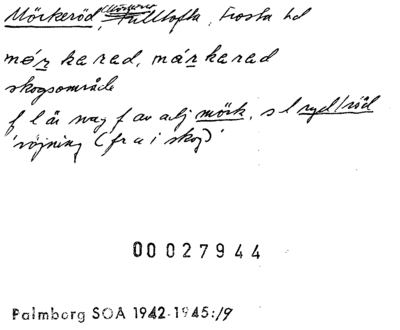 Mörkeröd, Fulltofta, Frosta hd
mørkarad, márkarad
skogsområde
f l är svag f av adj mörk, s l ryd/röd
'röjning (fr a i skog)'
00027944
Palmborg SOA 1942-1945:/9